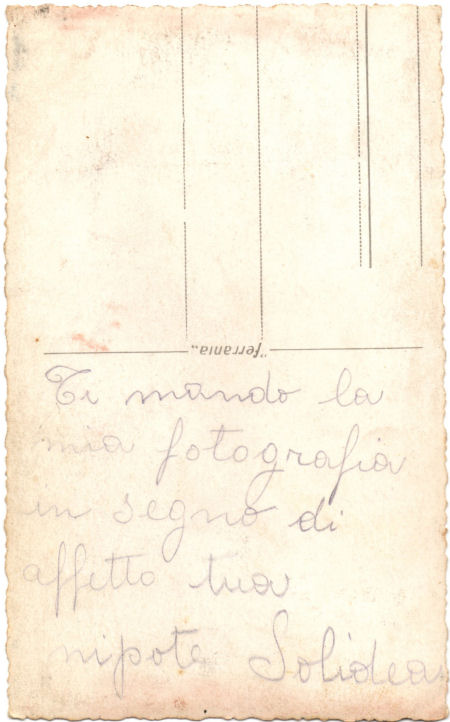 "ferrania„
Ti mando la
mia fotografia
in segno di
affetto tua
nipote Solidea